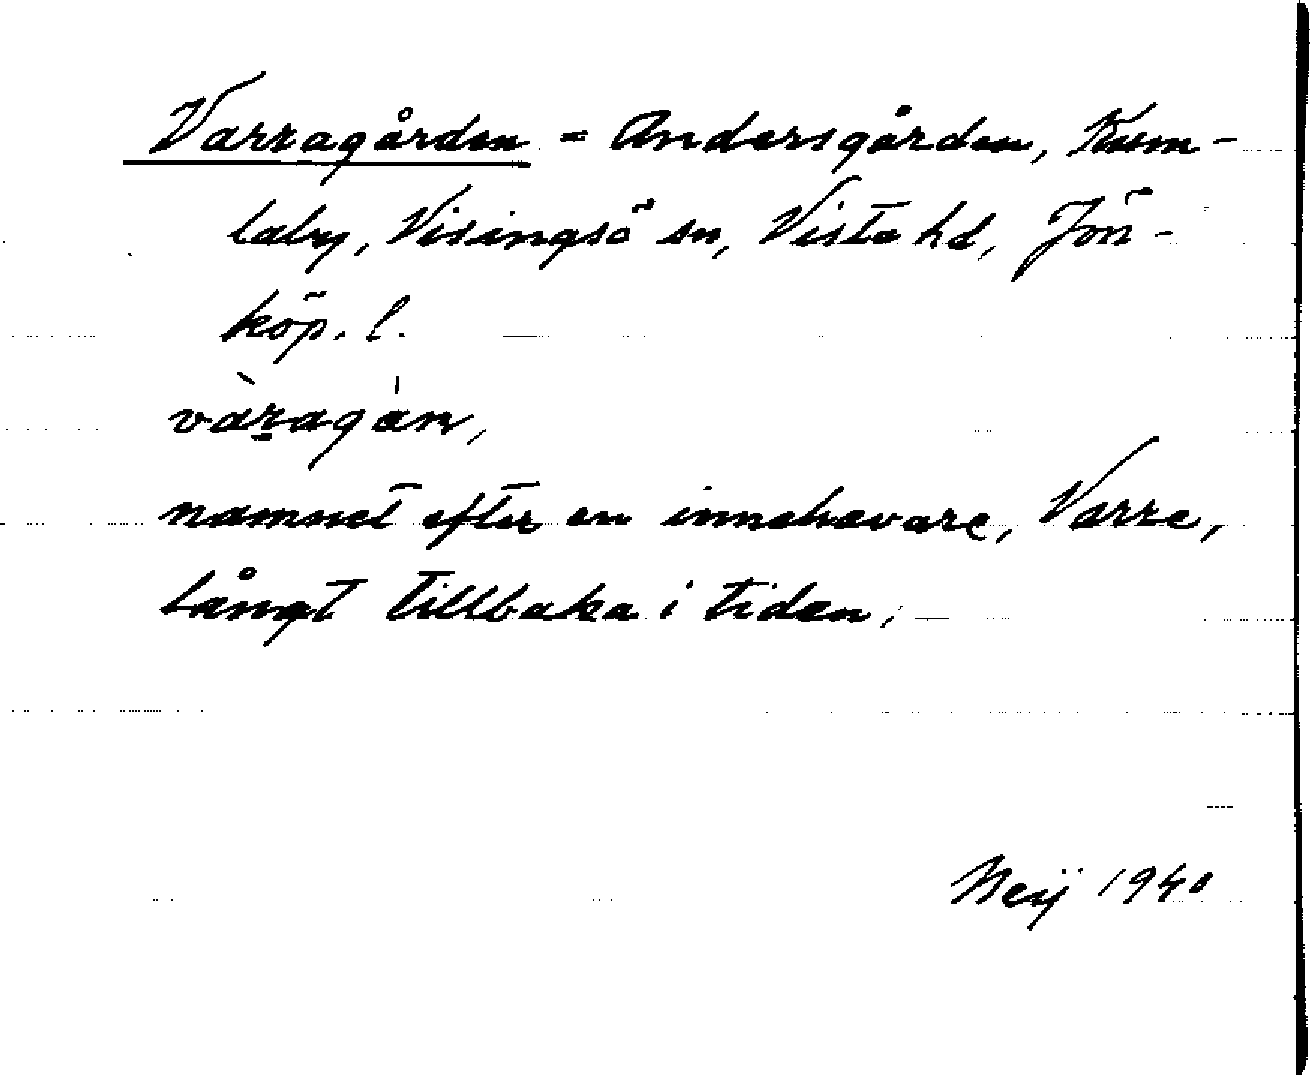 Varragården = Andersgården, Kum-
laby, Visingsö sn, Vista hd, Jön-
köp. l.
vàr̲agȧn,
namnet efter en innehavare, Varre,
långt tillbaka i tiden.
Neij 1940